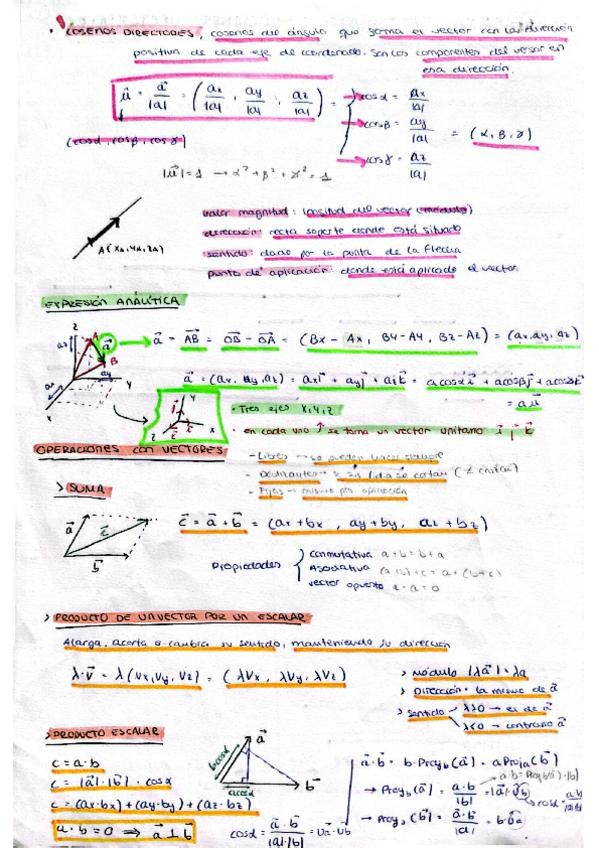 · COSENOS DIRECTORES: cosenos del ángulo que forma el vector con la dirección
positiva de cada eje de coordenado. Son los componentes del versor en
esa dirección.
μ⃗ = a⃗/|a| = (ax/|a|, ay/|a|, az/|a|) =
→ cosα = ax/|a|
→ cosβ = ay/|a|
→ cosγ = az/|a|
= (α, β, γ)
(cosα, cosβ, cosγ)
|μ⃗| = 1 → α² + β² + γ² = 1
A(XA, YA, ZA)
valor magnitud: longitud del vector (módulo)
dirección: recta soporte donde está situado
sentido: dado por la punta de la flecha
punto de aplicación: donde está aplicado el vector.
EXPRESIÓN ANALÍTICA
z
A
a⃗
B
ay
y
x
→ a⃗ = AB⃗ = OB⃗ - OA⃗ = (Bx - Ax, By - Ay, Bz - Az) = (ax, ay, az)
a⃗ = (ax, ay, az) = axi⃗ + ayj⃗ + azk⃗ = acosαi⃗ + acosβj⃗ + acosγk⃗
= aμ⃗
Y
X
Z
· Tres ejes X, Y, Z
· en cada uno ↑ se toma un vector unitario i⃗ j⃗ k⃗
OPERACIONES CON VECTORES
- Libres → se pueden hacer siempre
- Deslizantes → si se cortan
- Fijos → mismo pto. aplicación
> SUMA
a⃗
c⃗
b⃗
c⃗ = a⃗ + b⃗ = (ax + bx, ay + by, az + bz)
Propiedades
conmutativa a + b = b + a
Asociativa (a + b) + c = a + (b + c)
vector opuesto a - a = 0
> PRODUCTO DE UN VECTOR POR UN ESCALAR
Alarga, acorta o cambia su sentido, manteniendo su dirección
λ · v⃗ = λ(Vx, Vy, Vz) = (λVx, λVy, λVz)
> módulo |λa⃗| = λa
> Dirección: la misma de a⃗
> sentido
λ>0 → el de a⃗
λ<0 → contrario a⃗
> PRODUCTO ESCALAR
c = a · b
c = |a⃗| · |b⃗| · cosα
c = (ax · bx) + (ay · by) + (az · bz)
a · b = 0 ⟹ a⃗ ⊥ b⃗
bcosα
a⃗
acosα
b⃗
cosα = a⃗ · b⃗/|a| · |b| = ua⃗ · ub⃗
a⃗ · b⃗ = b · Proyb(a⃗) = a Proja(b⃗)
→ Proyb(a⃗) = a · b/|b| = |a⃗| ·
cosα = a · b/|a||b|
→ Proya(b⃗) = a⃗ · b⃗/|a|